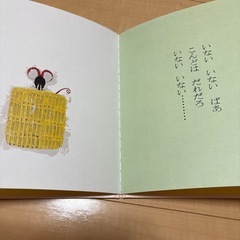 いない いない ばあ
こんどは だれだろ
いない いない………